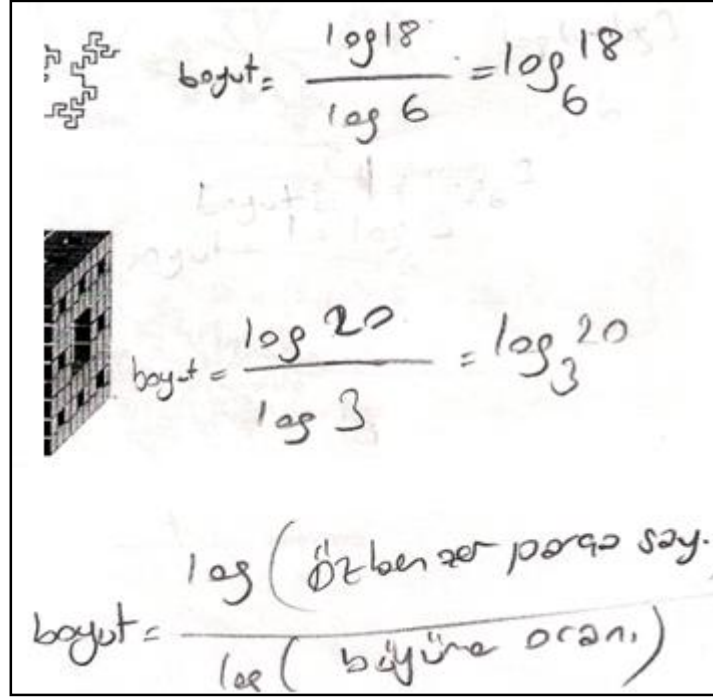 boyut = log18 / log 6 = log₆18
boyut = log 20 / log 3 = log₃20
boyut = log ( özbenzer parça say. / log ( büyüme oranı )